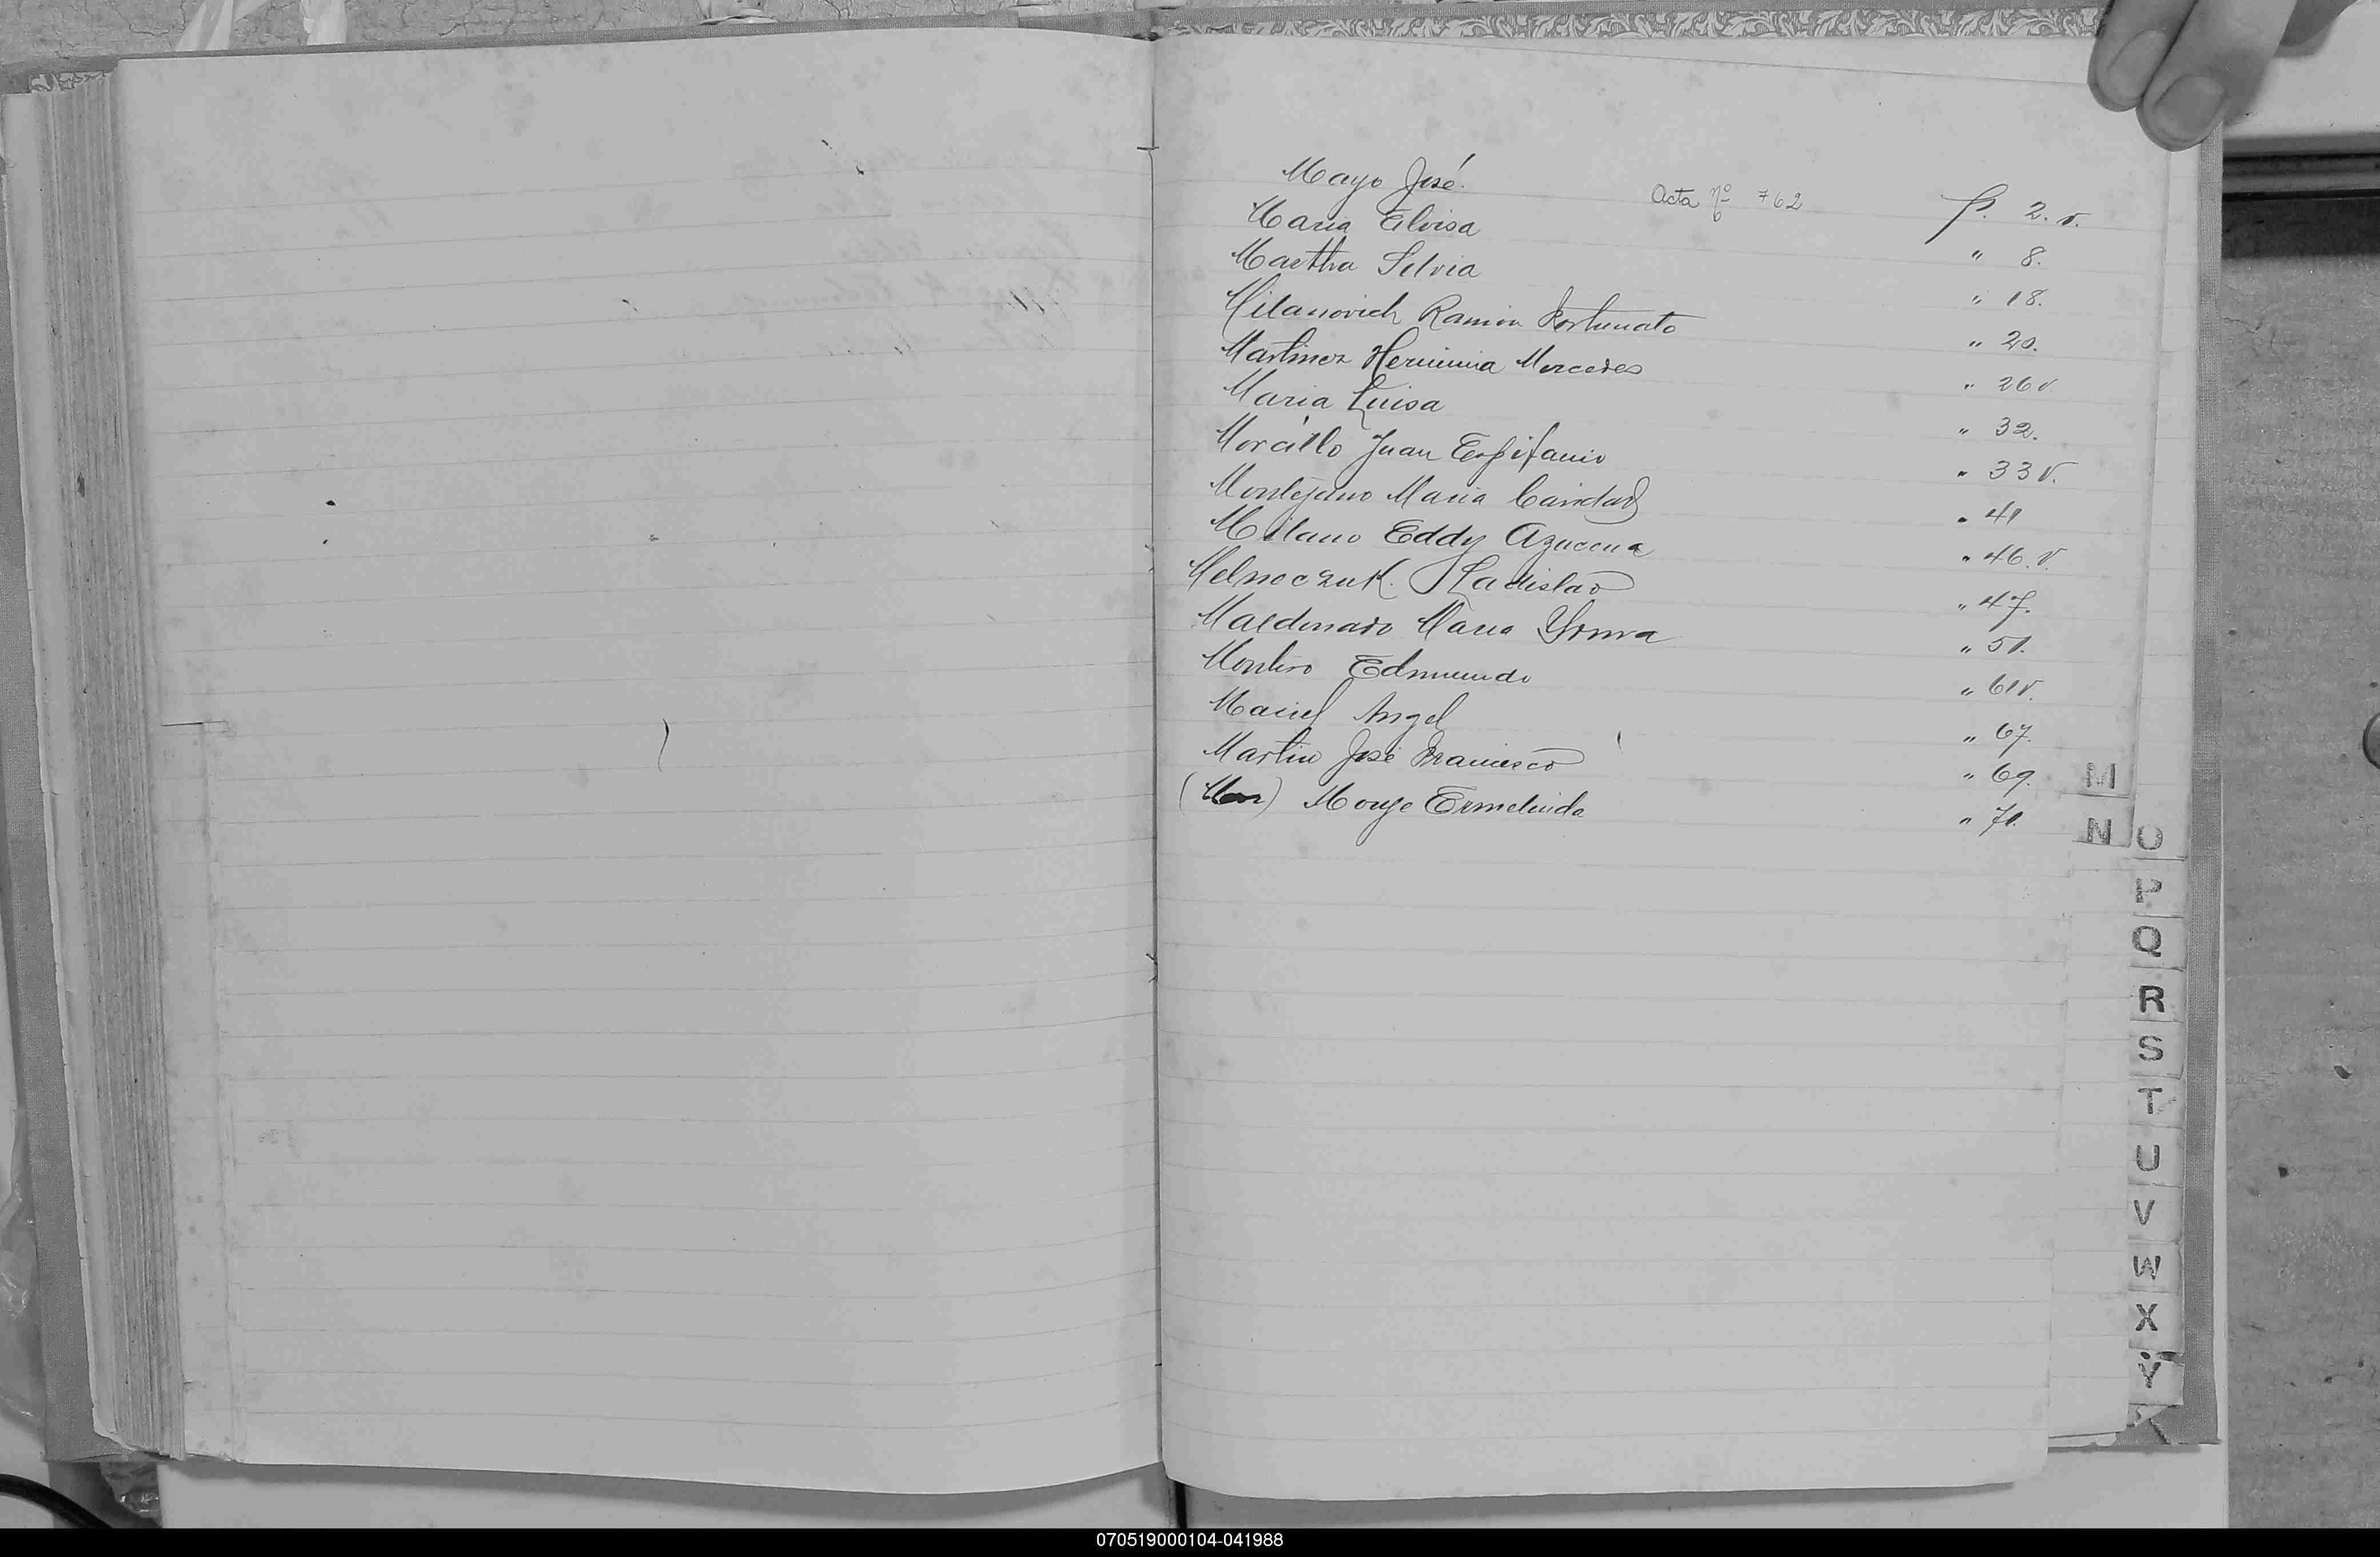 Mayo José. Acta nº 762 f. 2. v.
Maria Elvisa " 8.
Martha Silvia " 18.
Milanovich Ramón Fortunato " 20.
Martinez Herminia Mercedes " 26 v.
Maria Luisa " 32.
Morcillo Juan Epifanio " 33 v.
Montejano Maria Caridad " 41
Milano Eddy Azucena " 46. v.
Melneczuk. Ladislao " 47.
Maldonado Maria Ymma " 51.
Montiro Edmundo " 61 v.
Maciel Angel " 67.
Martin José Francisco " 69.
Monje Ermelinda " 71.
M
N
O
P
Q
R
S
T
U
V
W
X
Y
070519000104-041988